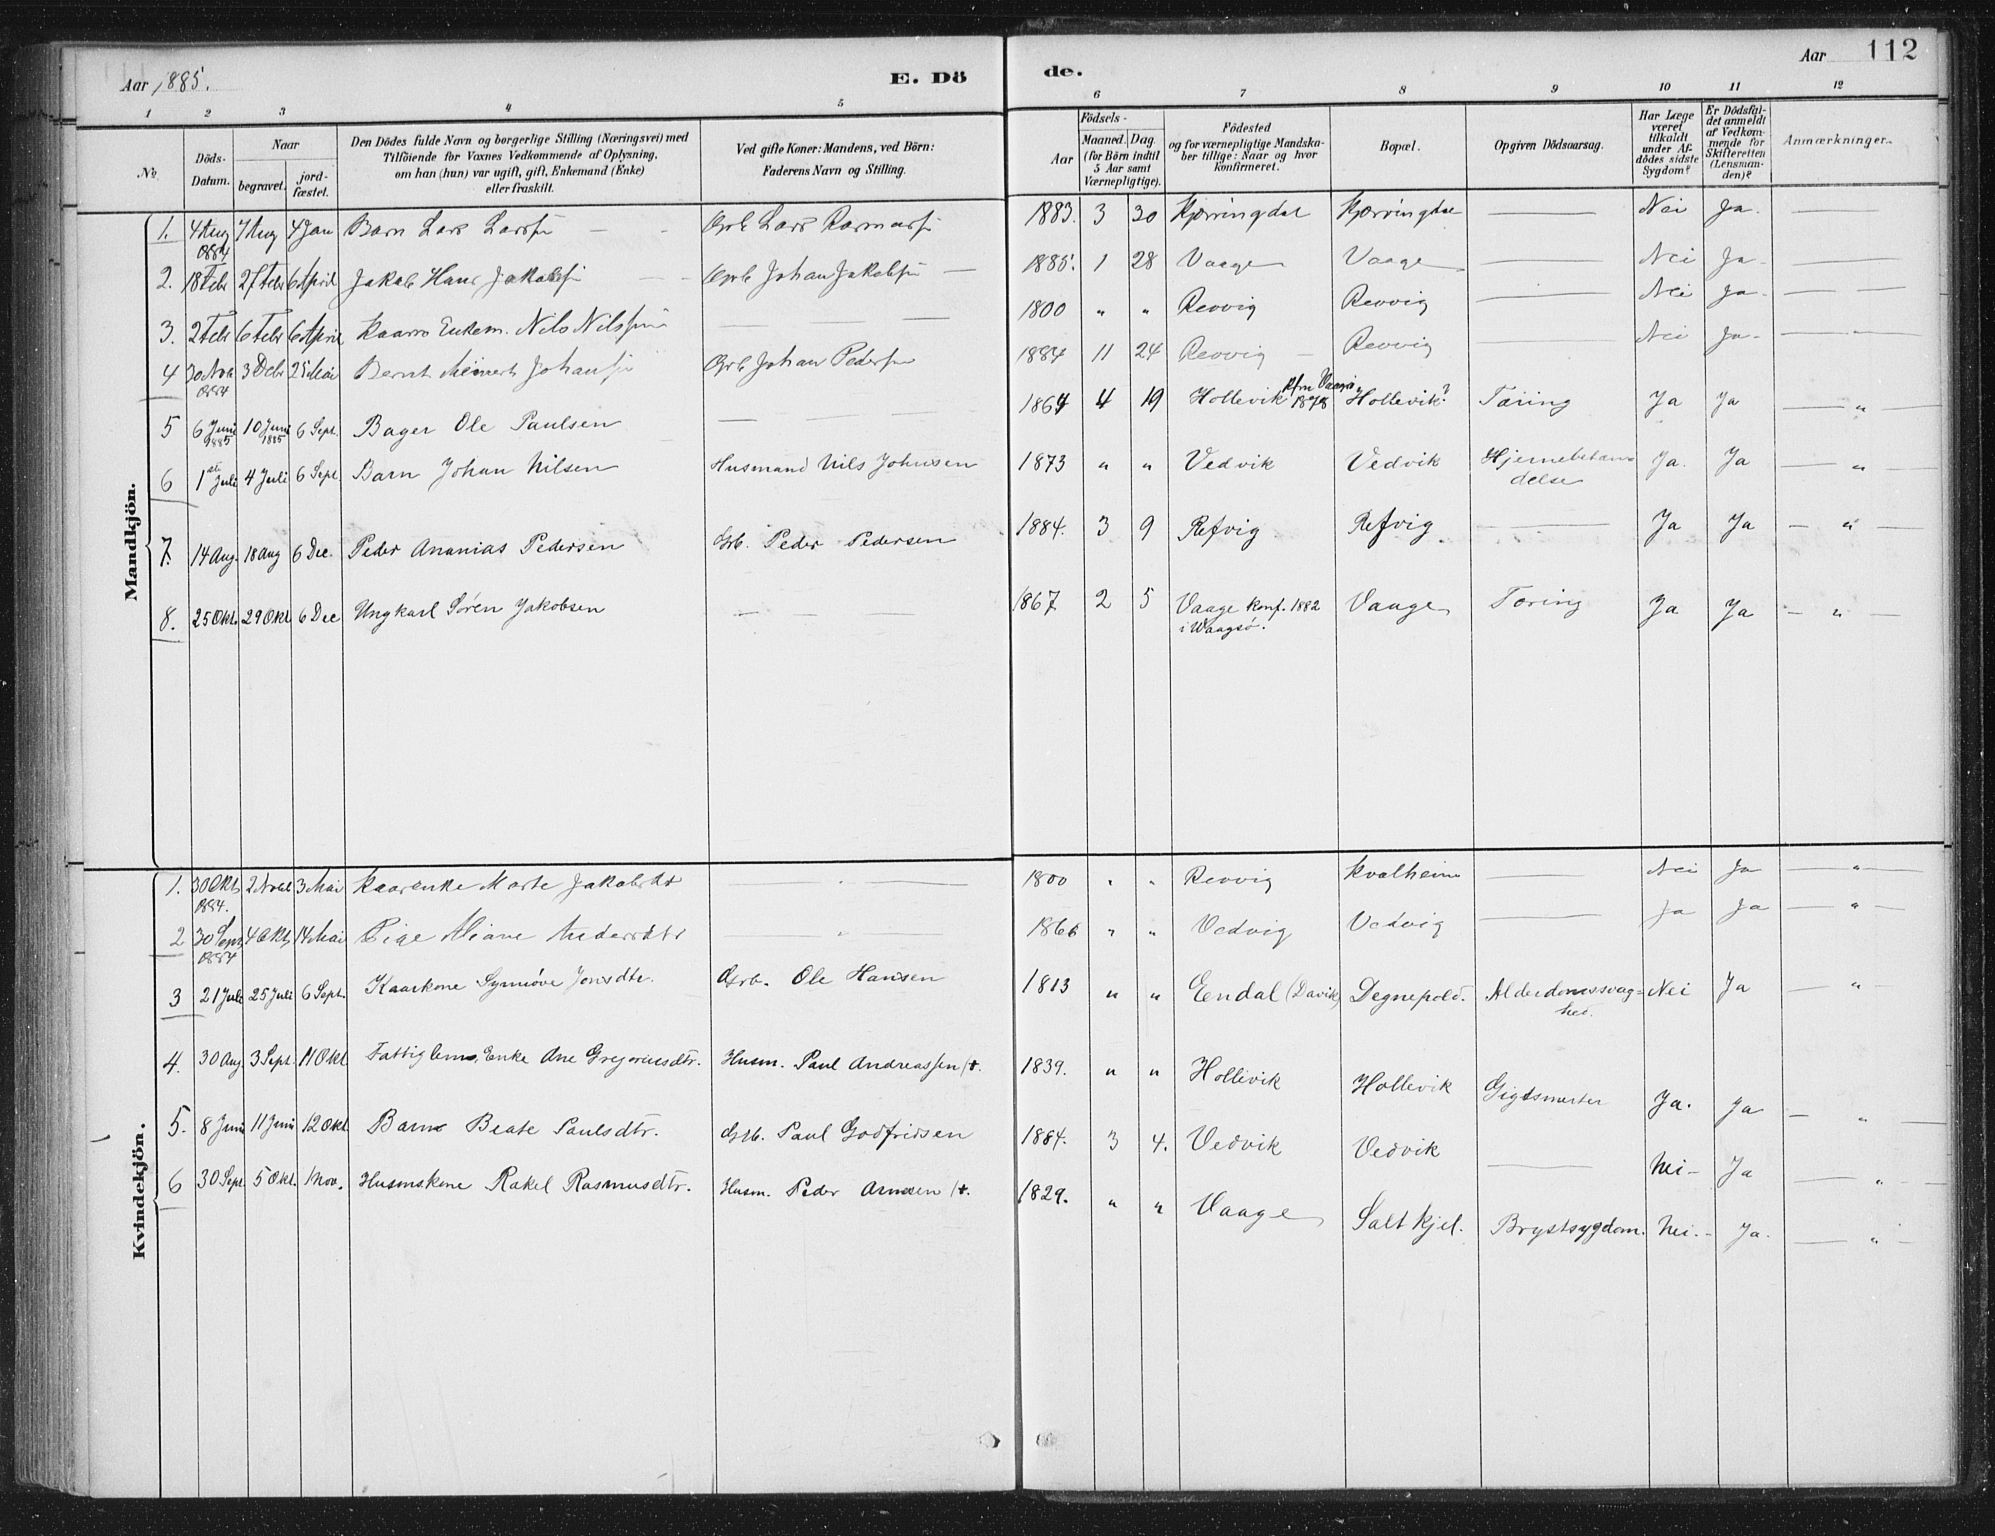 Aar 1885.
E. Dö
de.
Aar
112
1 2 3 4 5 6 7 8 9 10 11 12
№
Döds-Datum.
Naar
begravet.
jord-fæstet.
Den Dödes fulde Navn og borgerlige Stilling (Næringsvei) med
Tilföiende for Voxnes Vedkommende af Oplysning,
om han (hun) var ugift, gift, Enkemand (Enke)
eller fraskilt.
Ved gifte Koner: Mandens, ved Börn:
Faderens Navn og Stilling.
Födsels-
Aar
Maaned.
Dag.
(for Börn indtil
5 Aar samt
Værnepligtige).
Födested
og for værnepligtige Mandska-
ber tillige: Naar og hvor
konfirmeret.
Bopæl.
Opgiven Dödsaarsag.
Har Læge
været
tilkaldt
under Af-
dödes sidste
Sygdom?
Er Dödsfal-
det anmeldt
af Vedkom-
mende for
Skifteretten
(Lensman-
den)?
Anmærkninger.
Mandkjön.
1. 4 Aug 1884 7 Aug 4 Jan Barn Lars Larss. Grb Lars 1883. 3 30 Kjerringdal Kjerringdal Nei Ja.
2. 18 Febr 27 Febr 6 April Jakob Hans Jakobs. Grb Johan Jakobs. 1885. 1 28 Vaage Vaage Nei Ja.
3. 2 Febr 6 Febr 6 April Kaarm Enkem. Nils Nilss. 1800 " " Revvig Revvig Nei Ja.
4 30 Nov 1884 3 Debr 25 Mai Bernt Meinert Johans. Grb Johan Peders. 1884 11 24 Revvig Revvig Nei Ja. "
5 6 Juni 1885 10 Juni 1885 6 Sept. Bager Ole Paulsen 1864 4 19 Hollevik kfm Vaagsø 1878 Hollevik? Tæring Ja Ja "
6 1ste Juli 4 Juli 6 Sept. Barn Johan Nilsen Husmand Nils Johnsen 1873 " " Vedvik Vedvik Hjernebetæn-
delse Ja. Ja "
7. 14 Aug. 18 Aug 6 Dec. Peder Ananias Pedersen Grb. Peder Pedersen 1884. 3 9 Refvig Refvig. Ja Ja "
8. 25 Okt. 29 Okt 6 Dec Ungkarl Søren Jakobsen 1867 2 5 Vaage konf. 1882
i Waagsø. Vaage Tæring Ja Ja "
Kvindekjön.
1. 30 Okt 1884. 2 Novb 3 Mai Kaarenke Marte Jakobsdtr 1800 " " Revvig Kvalheim Nei Ja "
2 30 Sept 1884 4 Okt 14 Mai Pige Andersdtr 1866 " " Vedvig Vedvig Ja Ja "
3 21 Juli 25 Juli 6 Sept. Kaarkone Synnøve Jonsdtr. Grb. Ole Hansen 1813 " " Endal (Davik) Degnepold. Alderdomssvag=
hed. Nei Ja "
4. 30 Aug 3 Sept. 11 Okt. Fattiglem, Enke Ane Gregoriusdtr. Husm. Paul Andreassen †. 1839. " " Hollivik Hollevik Gigtsmerter Ja. Ja "
5. 8 Juni 11 Juni 12 Okt. Barn Beate Paulsdtr. Grb. Paul Godfridsen 1884. 3 4. Vedvik Vedvik Nei Ja "
6 30 Sept. 5 Okt. 1 Nov. Husmskone Rakel Rasmusdtr. Husm. Peder Arnesen †. 1829. " " Vaage Saltkjel. Brystsygdom. Nei. Ja. "